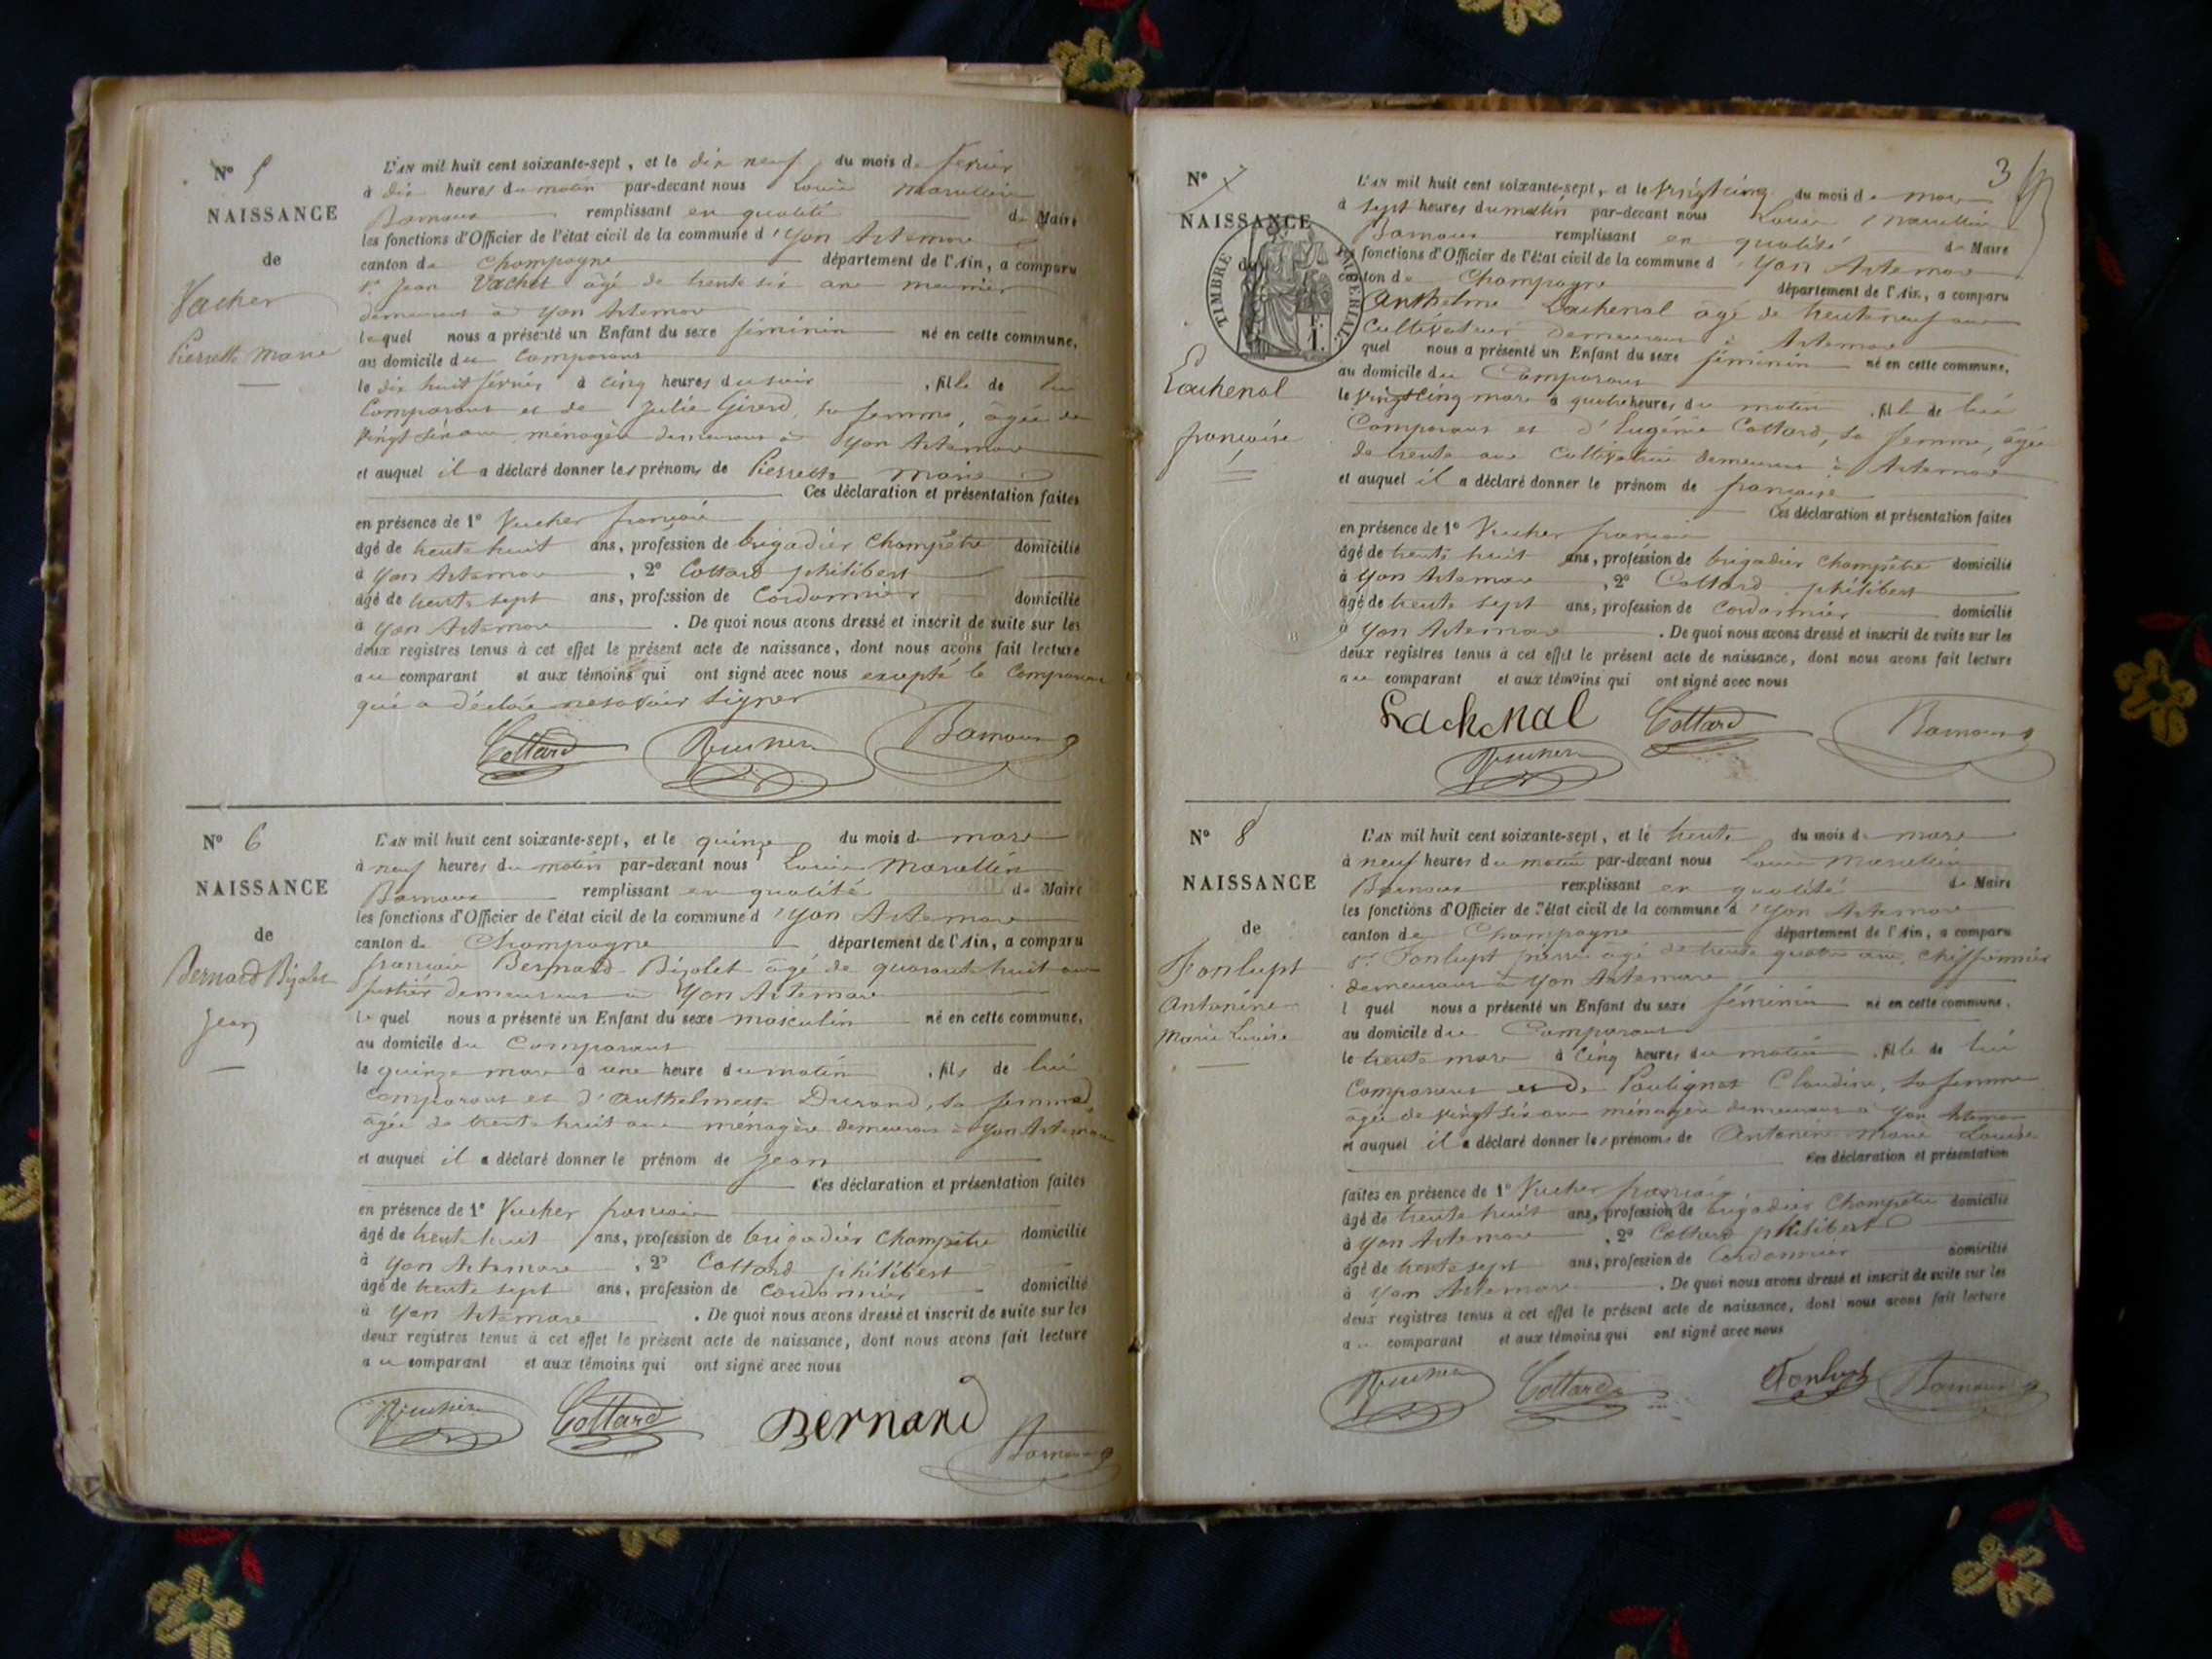 N° 5
NAISSANCE
de
Vacher
Pierrette Marie
L'AN mil huit cent soixante-sept, et le dix neuf du mois de février
à dix heures du matin par-devant nous Louis Marcellin
remplissant en qualité de Maire
les fonctions d'Officier de l'état civil de la commune d'Yon Artemare
canton de Champagne département de l'Ain, a comparu
sr Jean Vachet âgé de trente six ans meunier
demeurant à Yon Artemare
lequel nous a présenté un Enfant du sexe féminin né en cette commune,
au domicile du Comparant
le dix huit février à cinq heures du soir, fille de lui
Comparant et de Julie Girerd, sa femme, âgée de
vingt six ans ménagère demeurant à Yon Artemare
et auquel il a déclaré donner les prénoms de Pierrette Marie
Ces déclaration et présentation faites
en présence de 1° Vucher françois
âgé de trente huit ans, profession de brigadier Champêtre domicilié
à Yon Artemare, 2° Cottard philibert
âgé de trente sept ans, profession de Cordonnier domicilié
à Yon Artemare. De quoi nous avons dressé et inscrit de suite sur les
deux registres tenus à cet effet le présent acte de naissance, dont nous avons fait lecture
au comparant et aux témoins qui ont signé avec nous excepté le Comparant
qui a déclaré ne savoir signer
Cottard Vucher
N° 6
NAISSANCE
de
Bernard Bizolet
Jean
L'AN mil huit cent soixante-sept, et le quinze du mois de mars
à neuf heures du matin par-devant nous Louis Marcellin
remplissant en qualité de Maire
les fonctions d'Officier de l'état civil de la commune d'Yon Artemare
canton de Champagne département de l'Ain, a comparu
françois Bernard-Bizolet âgé de quarante huit ans
demeurant à Yon Artemare
lequel nous a présenté un Enfant du sexe masculin né en cette commune,
au domicile du Comparant
le quinze mars à une heure du matin, fils de lui
Comparant et d'Anthelmette Durand, sa femme
âgée de trente huit ans ménagère demeurant à Yon Artemare
et auquel il a déclaré donner le prénom de Jean
Ces déclaration et présentation faites
en présence de 1° Vucher françois
âgé de trente huit ans, profession de brigadier Champêtre domicilié
à Yon Artemare, 2° Cottard philibert
âgé de trente sept ans, profession de Cordonnier domicilié
à Yon Artemare. De quoi nous avons dressé et inscrit de suite sur les
deux registres tenus à cet effet le présent acte de naissance, dont nous avons fait lecture
au comparant et aux témoins qui ont signé avec nous
Vucher Cottard Bernard
3
N° 7
NAISSANCE
de
TIMBRE IMPERIAL
Lachenal
françoise
L'AN mil huit cent soixante-sept, et le vingt cinq du mois de mars
à sept heures du matin par-devant nous Louis Marcellin
remplissant en qualité de Maire
les fonctions d'Officier de l'état civil de la commune d'Yon Artemare
canton de Champagne département de l'Ain, a comparu
Anthelme Lachenal âgé de trente neuf ans
Cultivateur demeurant à Artemare
quel nous a présenté un Enfant du sexe féminin né en cette commune,
au domicile du Comparant
le vingt cinq mars à quatre heures du matin, fille de lui
Comparant et d'Eugénie Cottard, sa femme, âgée
de trente ans Cultivatrice demeurant à Artemare
et auquel il a déclaré donner le prénom de françoise
Ces déclaration et présentation faites
en présence de 1° Vucher françois
âgé de trente huit ans, profession de brigadier Champêtre domicilié
à Yon Artemare, 2° Cottard philibert
âgé de trente sept ans, profession de Cordonnier domicilié
à Yon Artemare. De quoi nous avons dressé et inscrit de suite sur les
deux registres tenus à cet effet le présent acte de naissance, dont nous avons fait lecture
au comparant et aux témoins qui ont signé avec nous
Lachnal Cottard
Vucher
N° 8
NAISSANCE
de
Fonlupt
Antonine
Marie Louise
L'AN mil huit cent soixante-sept, et le trente du mois de mars
à neuf heures du matin par-devant nous Louis Marcellin
remplissant en qualité de Maire
les fonctions d'Officier de l'état civil de la commune d'Yon Artemare
canton de Champagne département de l'Ain, a comparu
sr Fonlupt pierre âgé de trente quatre ans, chiffonnier
demeurant à Yon Artemare
l quel nous a présenté un Enfant du sexe féminin né en cette commune,
au domicile du Comparant
le trente mars à cinq heures du matin, fille de lui
Comparant et de Poulignot Claudine, sa femme
âgée de vingt six ans ménagère demeurant à Yon Artemare
et auquel il a déclaré donner les prénoms de Antonine Marie Louise
Ces déclaration et présentation
faites en présence de 1° Vucher françois
âgé de trente huit ans, profession de brigadier Champêtre domicilié
à Yon Artemare, 2° Cottard philibert
âgé de trente sept ans, profession de Cordonnier domicilié
à Yon Artemare. De quoi nous avons dressé et inscrit de suite sur les
deux registres tenus à cet effet le présent acte de naissance, dont nous avons fait lecture
au comparant et aux témoins qui ont signé avec nous
Vucher Cottard Fonlupt